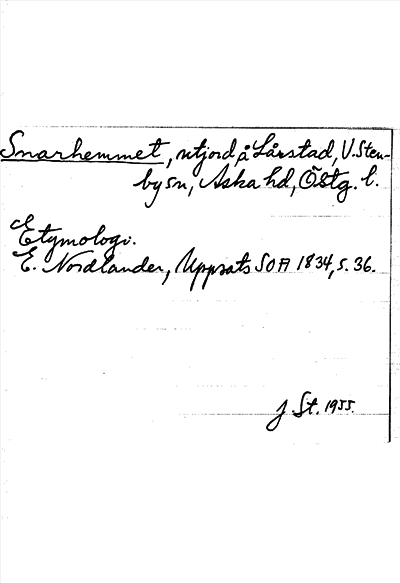 Snarhemmet, utjord å Lårstad, V. Sten-
by sn, Aska hd, Östg. l.
Etymologi.
E. Nordlander, Uppsats SOA 1834, s. 36.
J St. 1955.